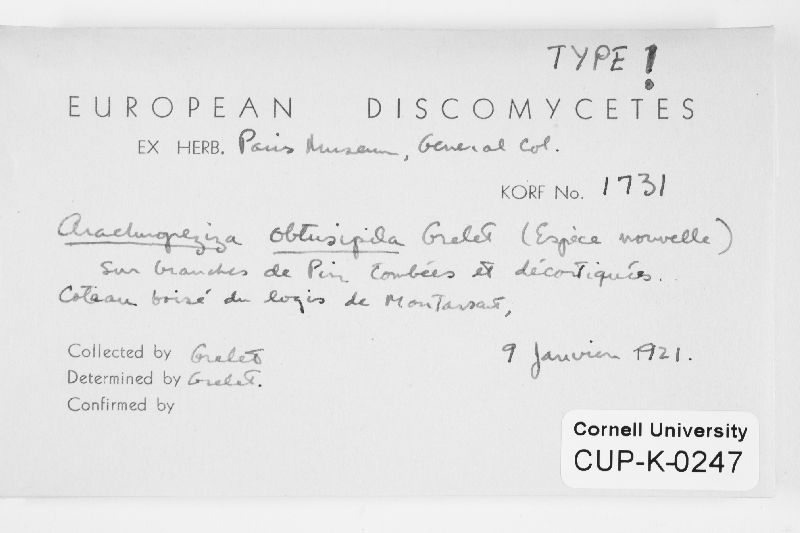 TYPE!
EUROPEAN DISCOMYCETES
EX HERB. Paris Museum, General Col.
KORF No. 1731
Arachnopeziza obtusipila Grelet (Espèce nouvelle)
Sur branches de Pin tombées et décortiquées.
Coteau boisé du logis de Montarsat,
Collected by Grelet
9 Janvier 1921.
Determined by Grelet.
Confirmed by
Cornell University
CUP-K-0247